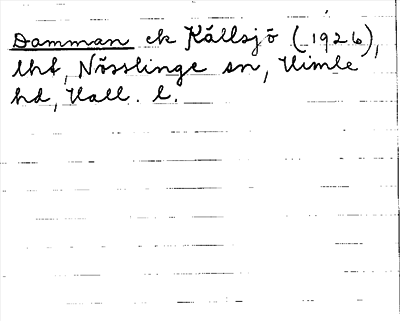 Damman ek Källsjö (1926),
lht, Nösslinge sn, Himle
hd, Hall. l.